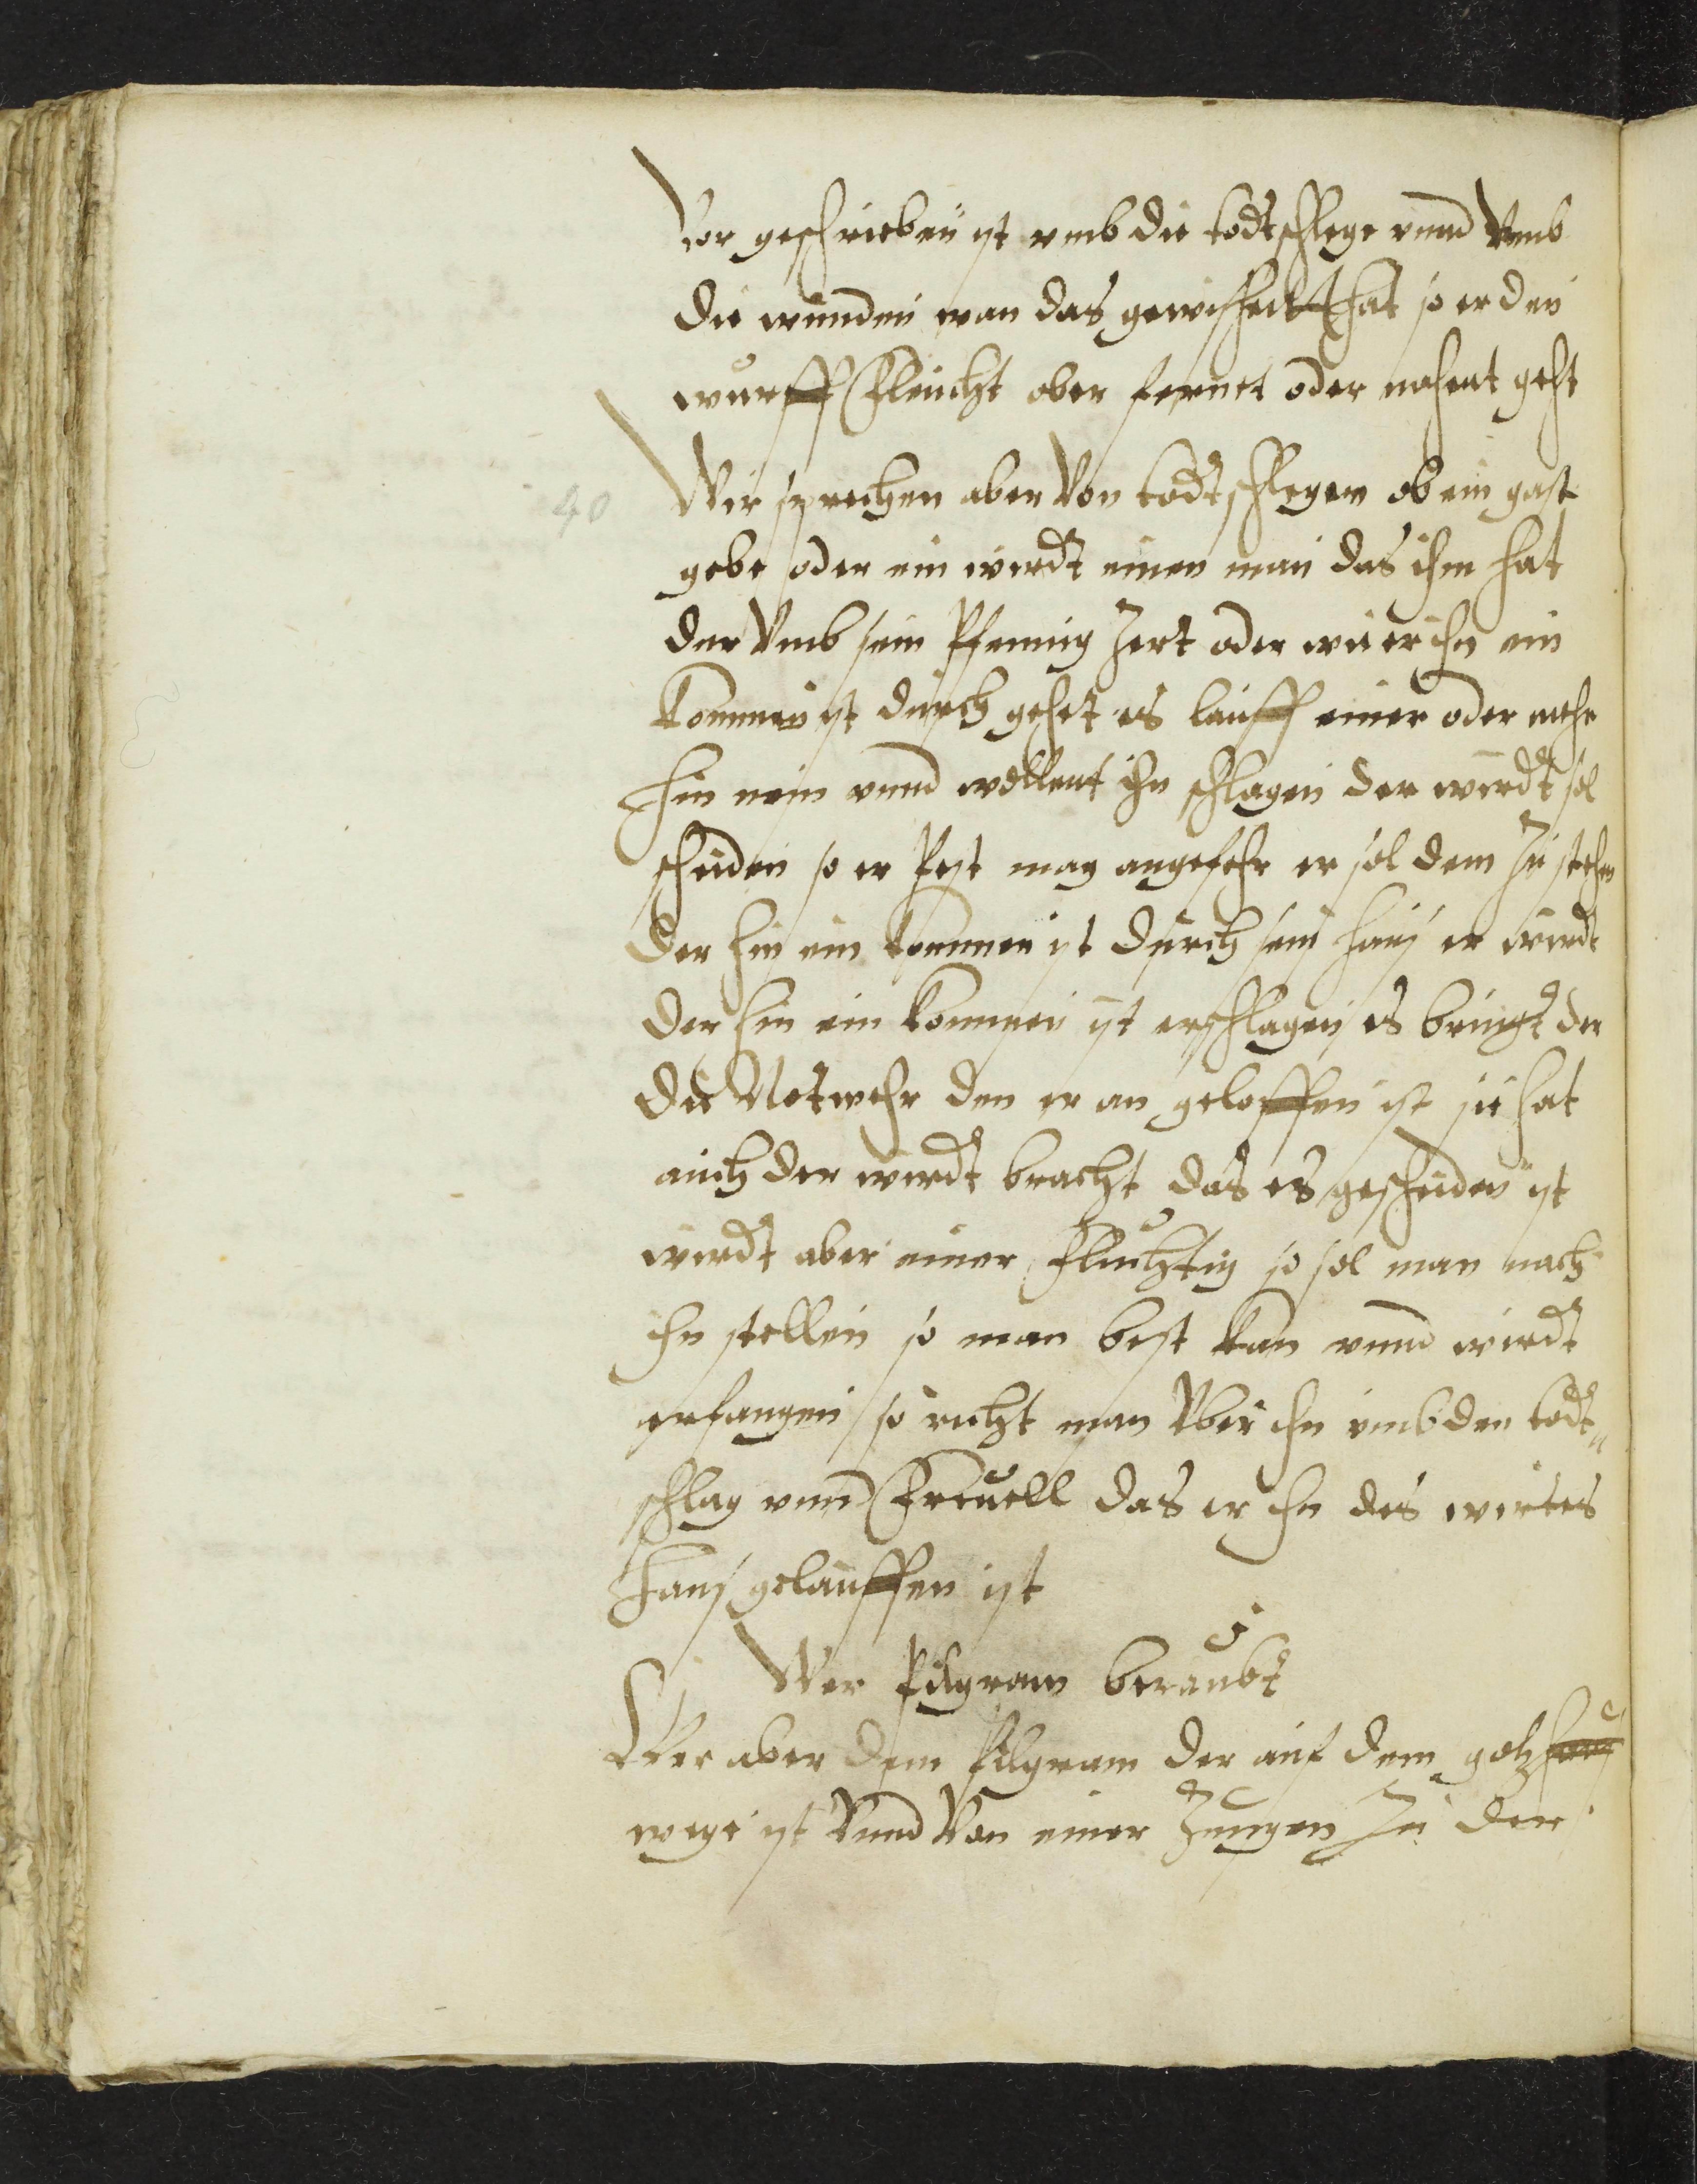 Vor geschrieben ist vmb die todtschlege vnnd Vmb
die wunden wan das gewisheit hat so er den
wurff fleucht ober fernet oder nahent geht
40 Wir sprechen aber Von todtschlegen ob ein gast
gebe oder ein wirdt einen man das ihm hat
der Vmb sein Pfennig Zert oder wie er ihn ein
kommen ist durch gehet es lauff einer oder mehr
hin nein vnnd wellent ihn schlagen der wirdt sol
scheiden so er Pest mag angefehr er sol dem Zu stehen
der hin ein kommen ist durch sein haus er wirdt
der hin ein kommen ist erschlagen es bringt der
die Notwehr den er an geloffen ist sie hat
auch der wirdt bracht das es gescheiden ist
wirdt aber einer fluchtig so sol man nach
ihn stellen so man best kan vnnd wirdt
er fangen so richt man Vber ihn vmb den todt„
schlag vnnd freuell das er ihn des wirtes
haus gelauffen ist
Wer Pilgram beraubt
Wer aber dem Pilgram der auf dem gotz haus
wege ist Vnnd Von einer Zungen Zu der